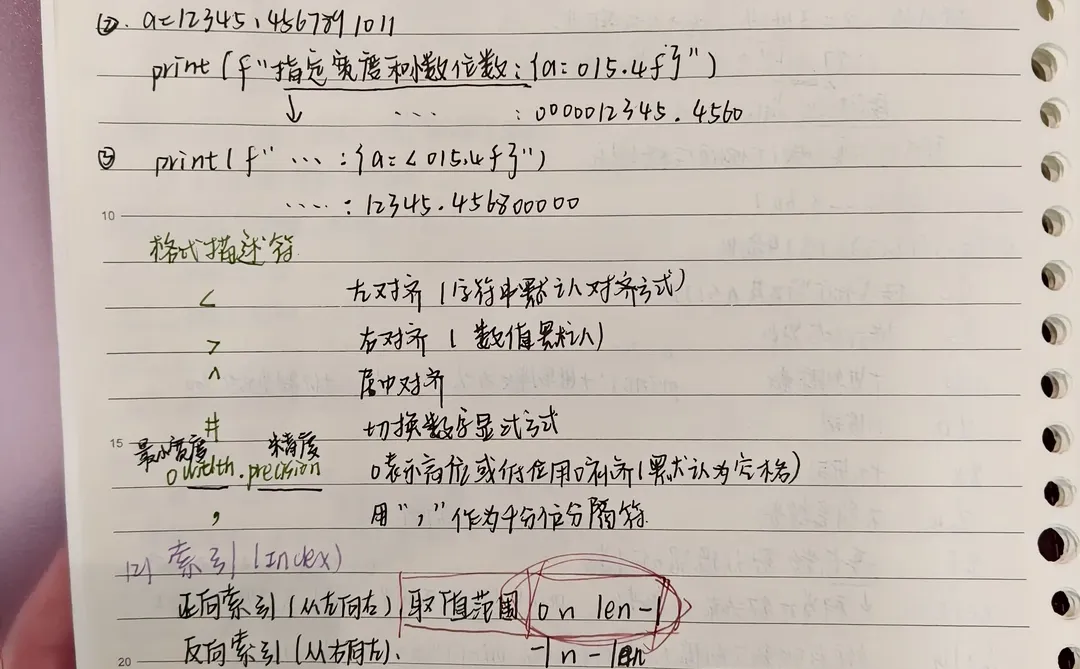 ② a=12345.4567891011
print(f"指定宽度和小数位数:{a:015.4f}")
↓ ... :0000012345.4560
③ print(f"...:{a:<015.4f}")
....:12345.456800000
10
格式描述符
< 左对齐(字符串默认对齐方式)
> 右对齐(数值默认)
^ 居中对齐
# 切换数字显式方式
15 最小宽度 精度
0width.precision 0表示高位或低位用0补齐(默认为空格)
, 用","作为千分位分隔符.
(2) 索引(Index)
正向索引(从左向右) 取值范围 0 n len-1
20 反向索引(从右向左). -1 n -len